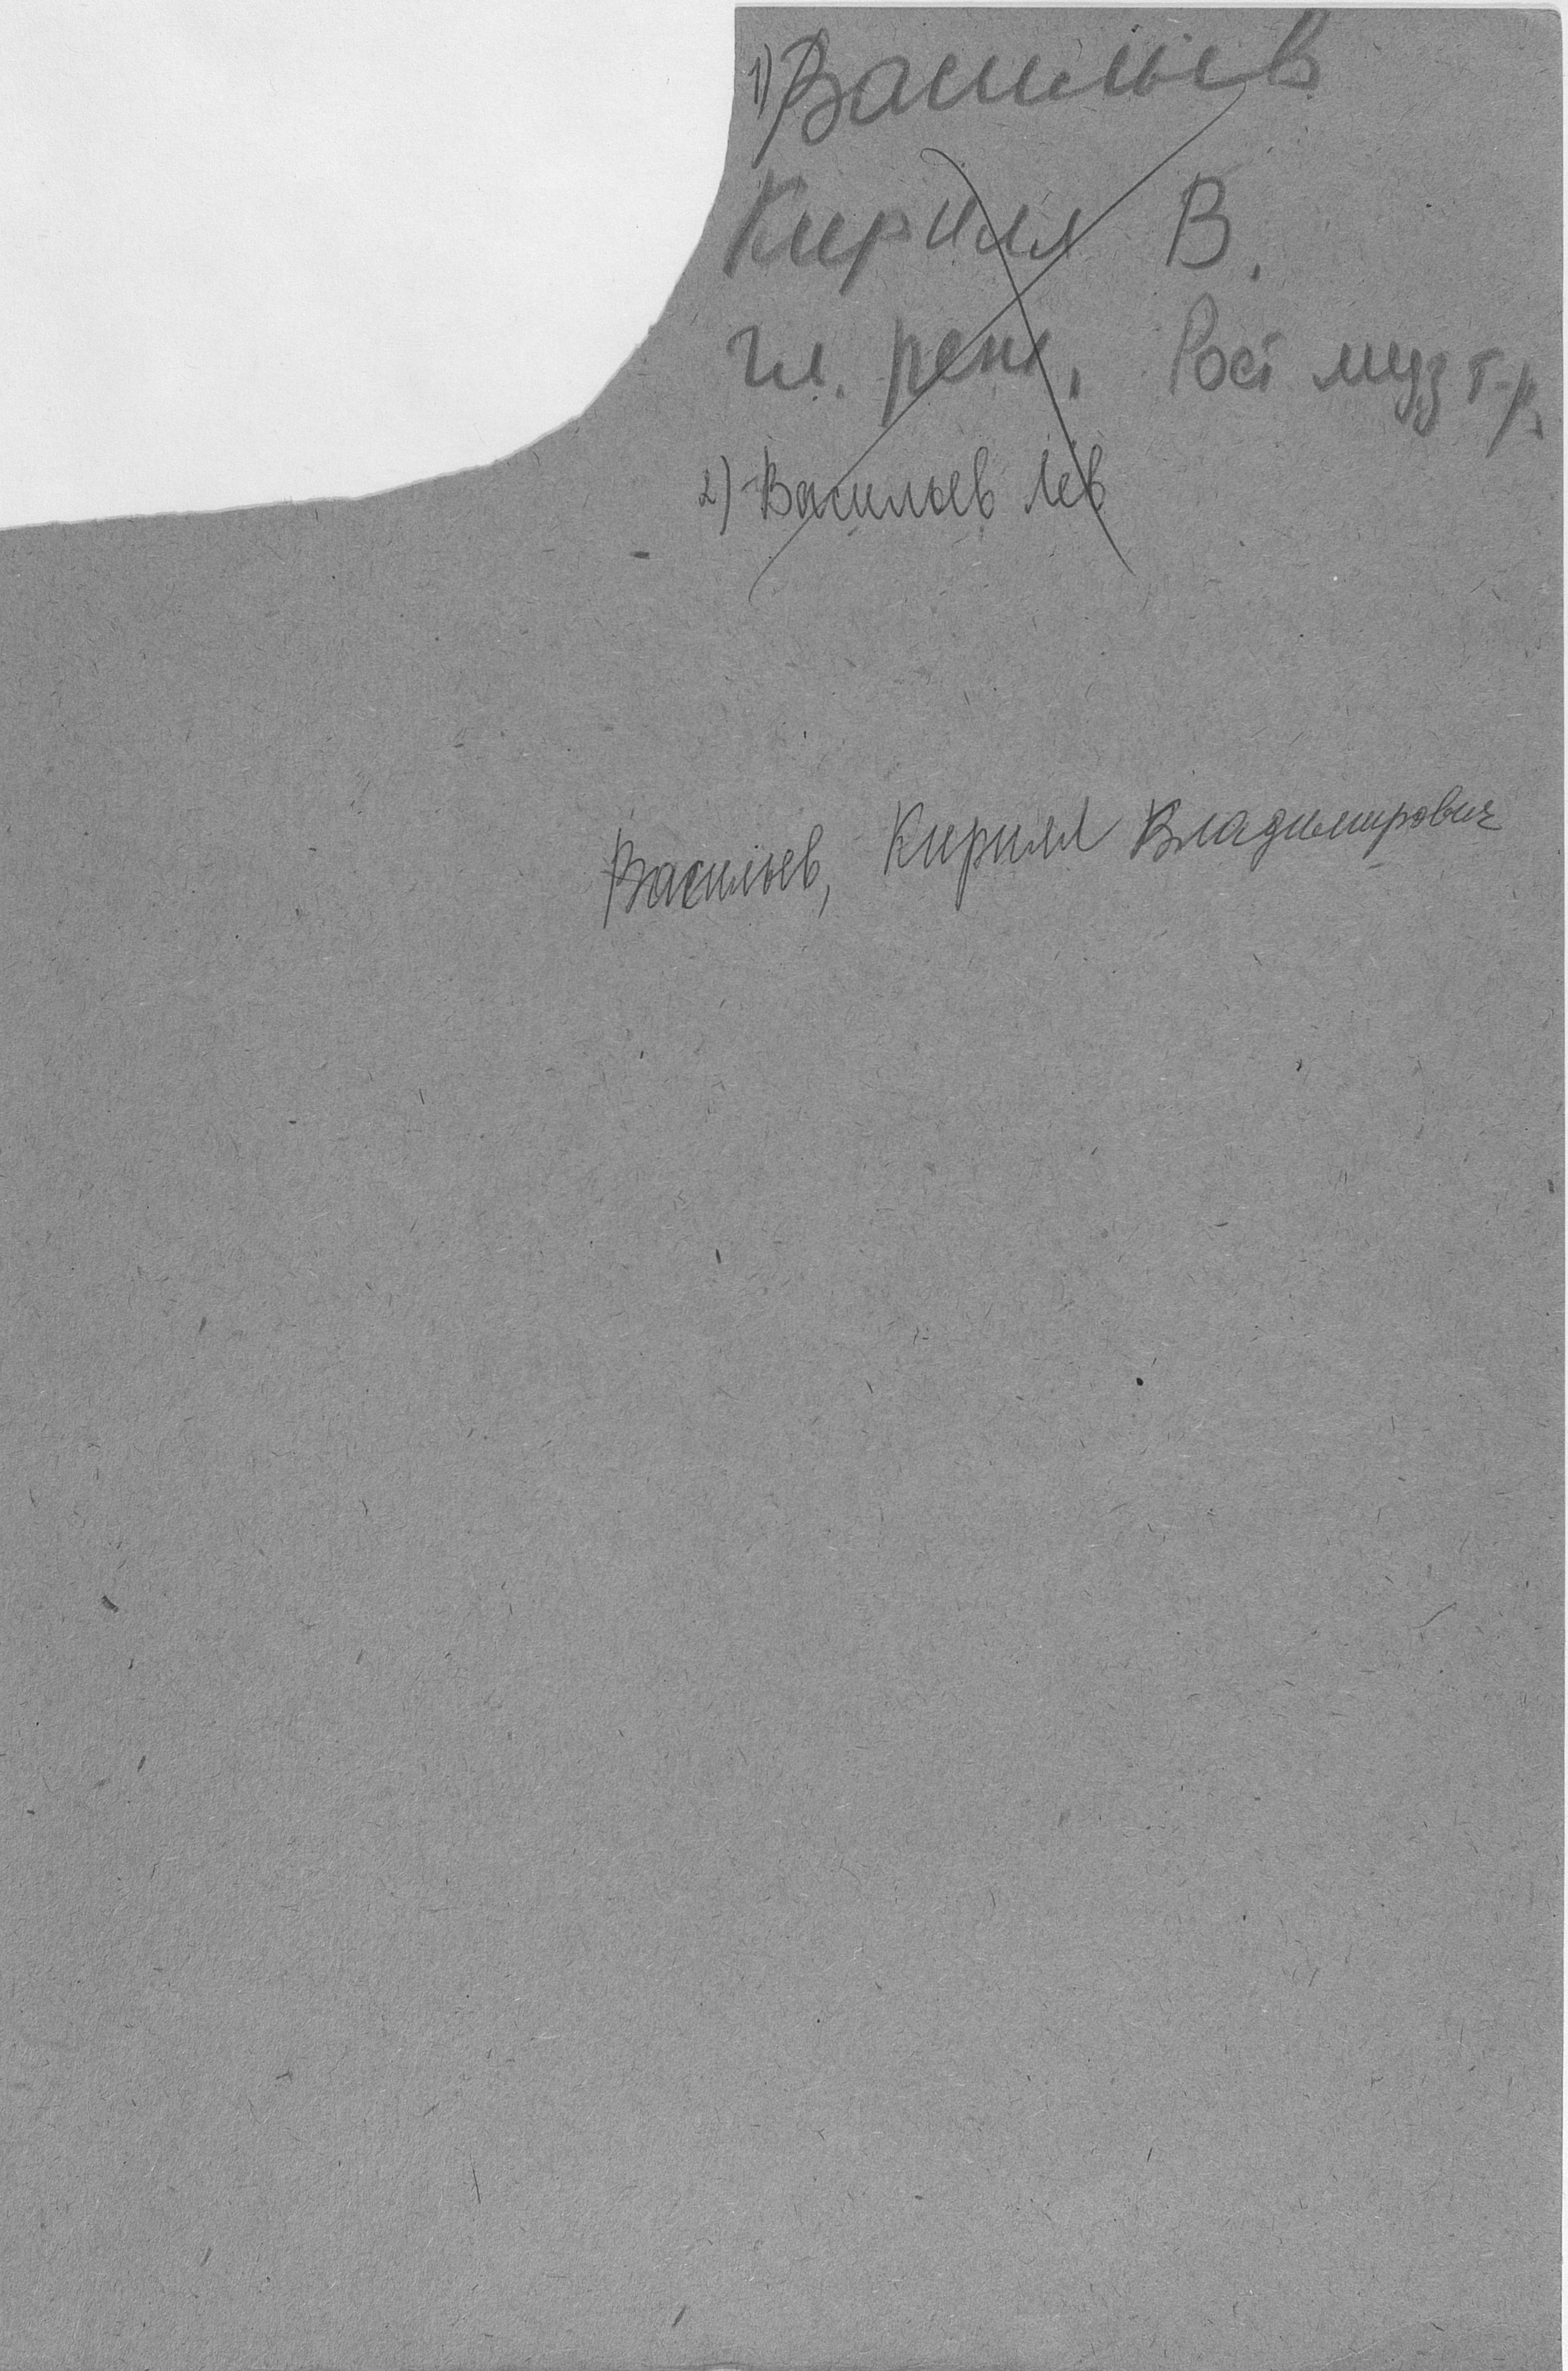 1) Васильев
Кирилл В.
гл. реж. Рост муз т-р.
2) Васильев Лев
Васильев, Кирилл Владимирович